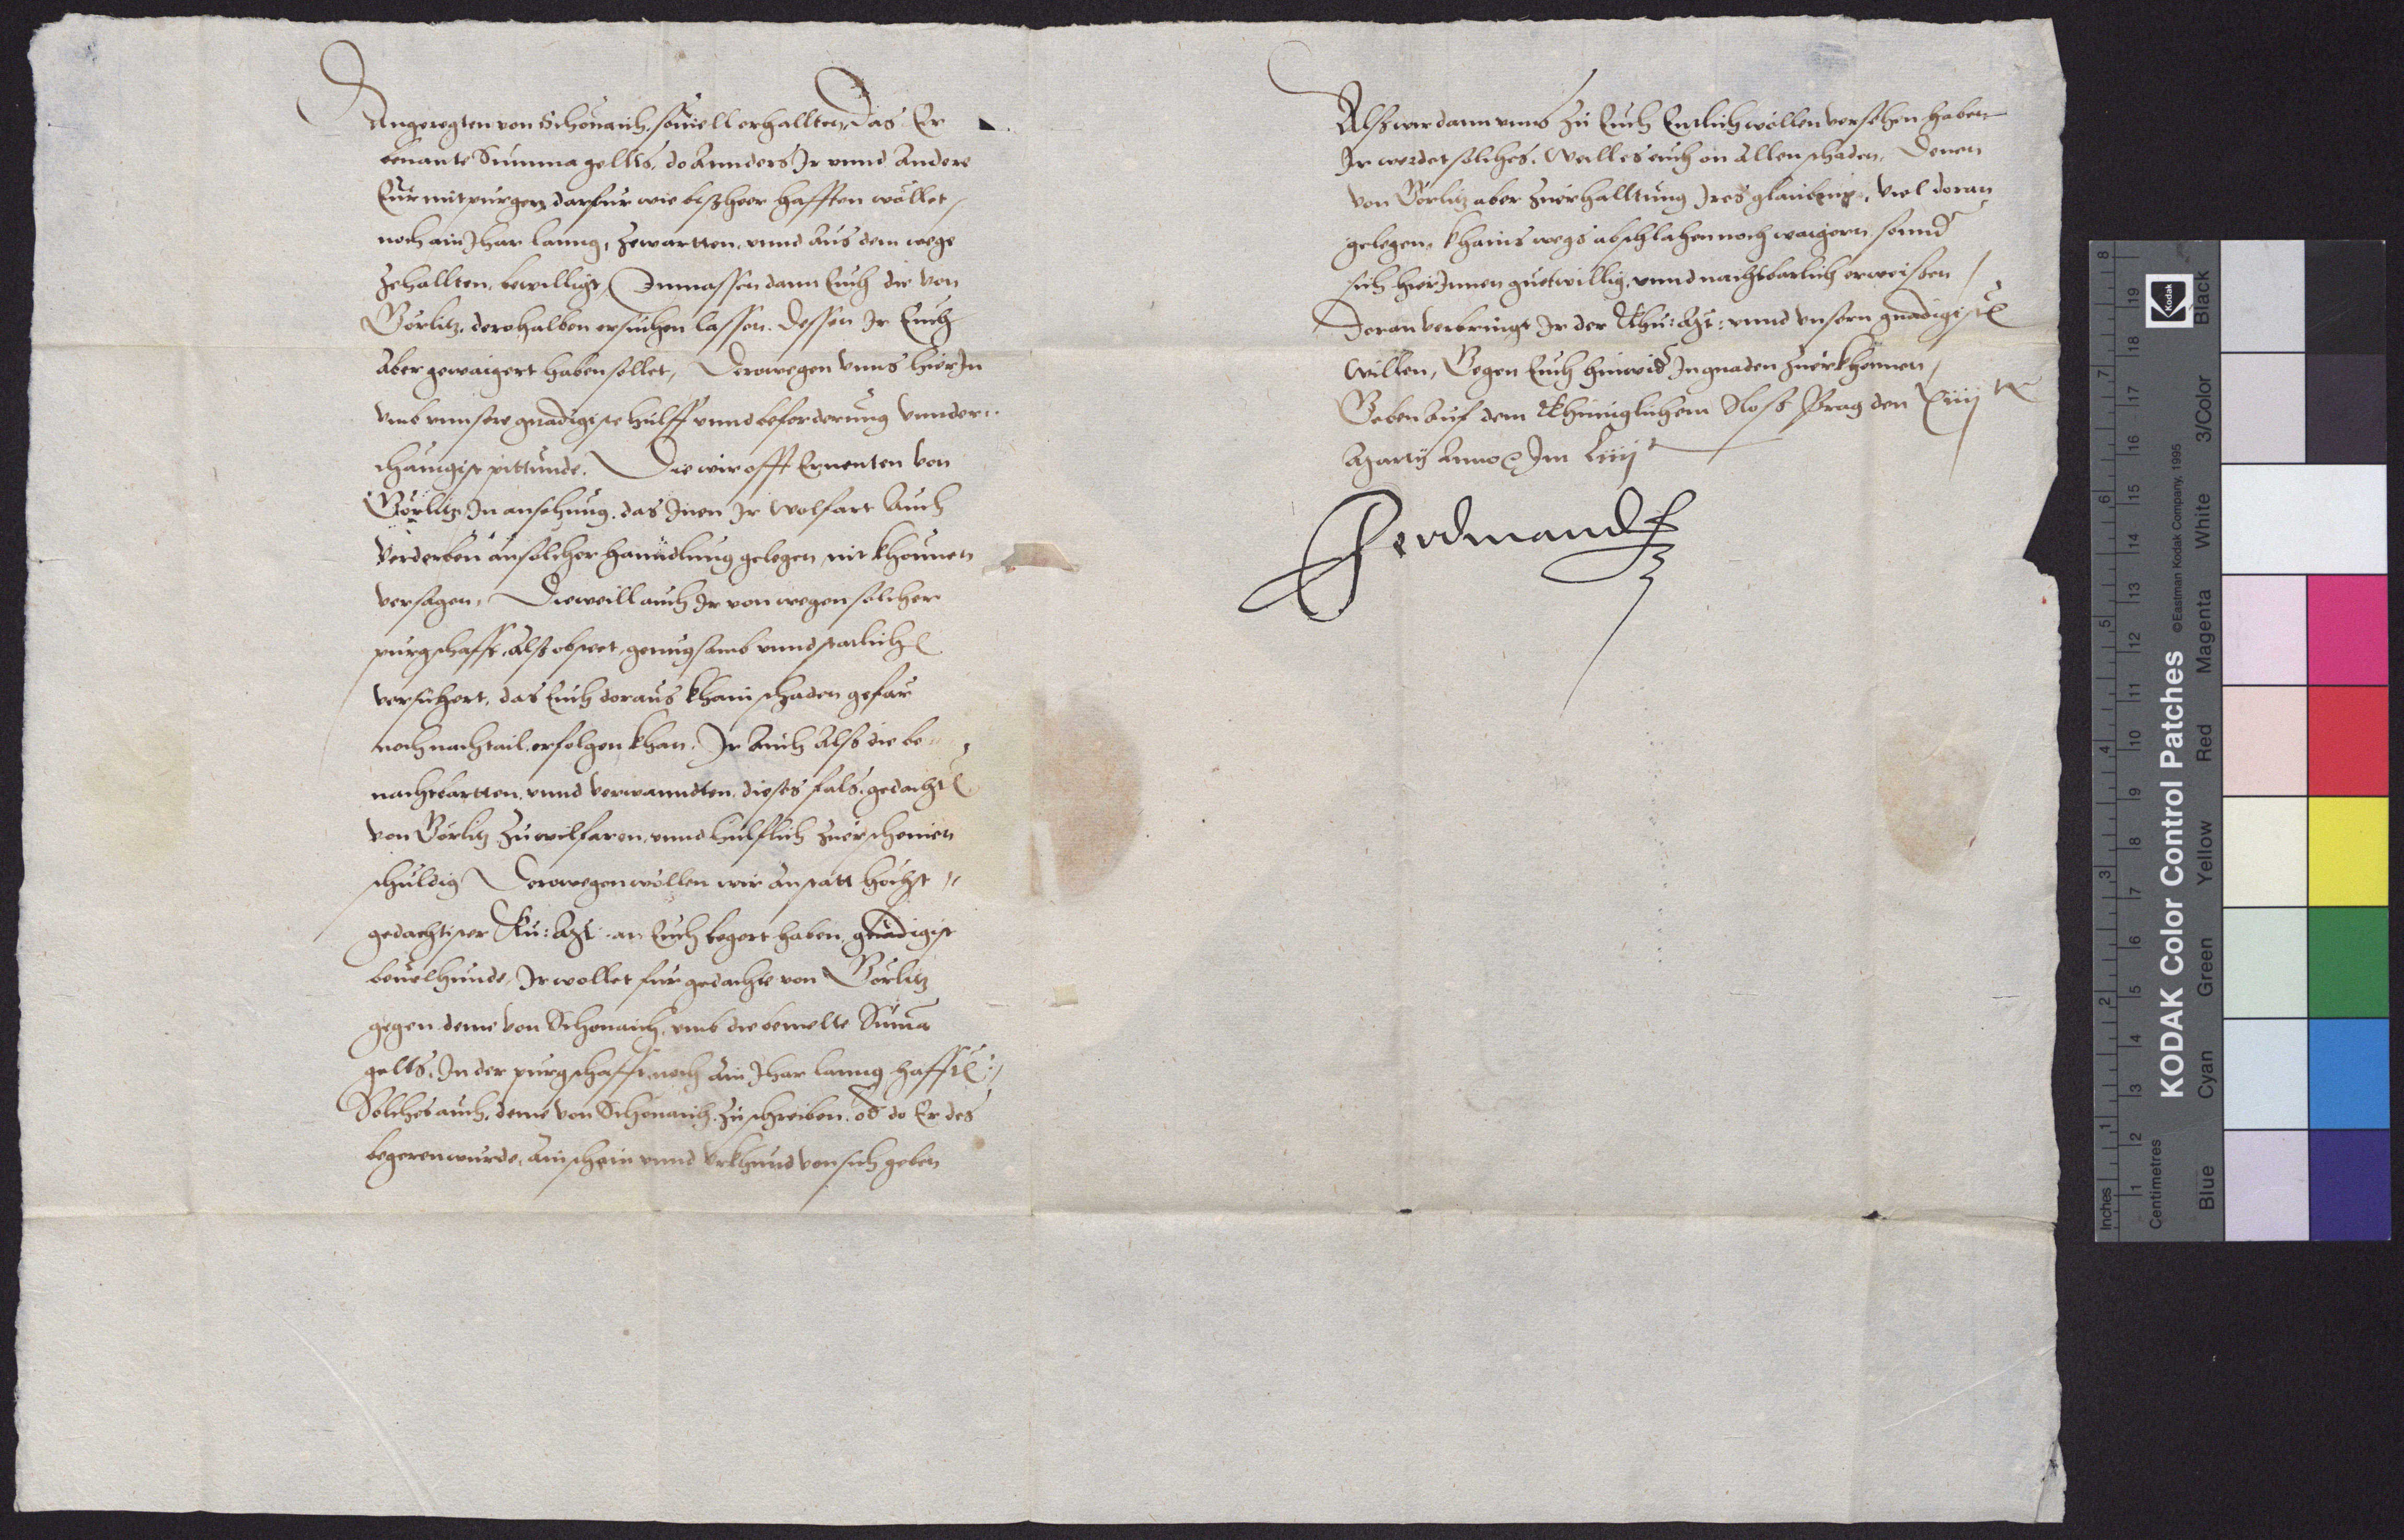 Angeregten von Schonaich, souiell erhallten, Das Er
benante Summa gellts, do Annders Ir vnnd Andere
Eur mitpurgen darfur wie bißheer hafften wollet,
noch ain Jhar lanng, zewartten, vnnd Aus dem wege
zehallten, bewilligt, Inmassen dann Euch die von
Görlitz, derohalben ersuchen lassen. Dessen Ir Euch
Aber gewaigert haben sollet, Derowegen vnns hierIn
vmb vnnsere gnadigiste hulff vnnd beforderung vnnder-
thanigist pittunde. Die wir offt Ernenten von
Görlitz In ansehung, das Inen Ir wolfart Auch
Verderben an solcher hanndlung gelegen nit khonnen
versagen, Dieweill auch Ir von wegen solcher
purgschafft, Alß obstet, genugsamb vnnd statlich
versichert, das Euch doraus khain schaden gefar
noch nachtail, erfolgen khan. Ir Auch Alß die be-
nachtbartten, vnnd verwanndten, dieses fals, gedacht
von Görlitz zuwilfaren, vnnd hulfflich zuerscheinen
schuldig Derowegen wollen wir anstatt höchst-
gedachtister Ku: Mt: an Euch begert haben, gnadigist
beuelhunde, Ir wollet fur gedachte von Görlitz
gegen deme von Schonaich, vmb die bemelte Suma
gellts, In der purgschafft, noch ain Jhar lanng hafften
Solches auch, deme von Schonaich zuschreiben, od do Er des
begeren wurde, ain schein vnnd Vrkhund von sich geben
Alß wir dann vnns zu Euch Entlich wollen versehen haben
Ir werdet solches, Weill es euch on Allen schaden, Denen
von Görlitz aber zuerhalltung Ires glaubens, viel doran
gelegen, khains wegs abschlahen noch waigern sonnd
sich hierInnen guetwillig, vnnd nachtbarlich erweisen
Doran verbringt Ir der Khu: Mt: vnnd vnsern gnadigisten
willen, Gegen Euch hinwid In gnaden zuerkhennen,
Geben auf dem Khuniglichem Sloß Prag den Xiiij ten
Martij Anno Im Liiij
Ferdinand
Inches 1 2 3 4 5 6 7 8
Centimetres 1 2 3 4 5 6 7 8 9 10 11 12 13 14 15 16 17 18 19
KODAK Color Control Patches ©Eastman Kodak Company, 1995
Kodak
Blue Cyan Green Yellow Red Magenta White 3/Color Black